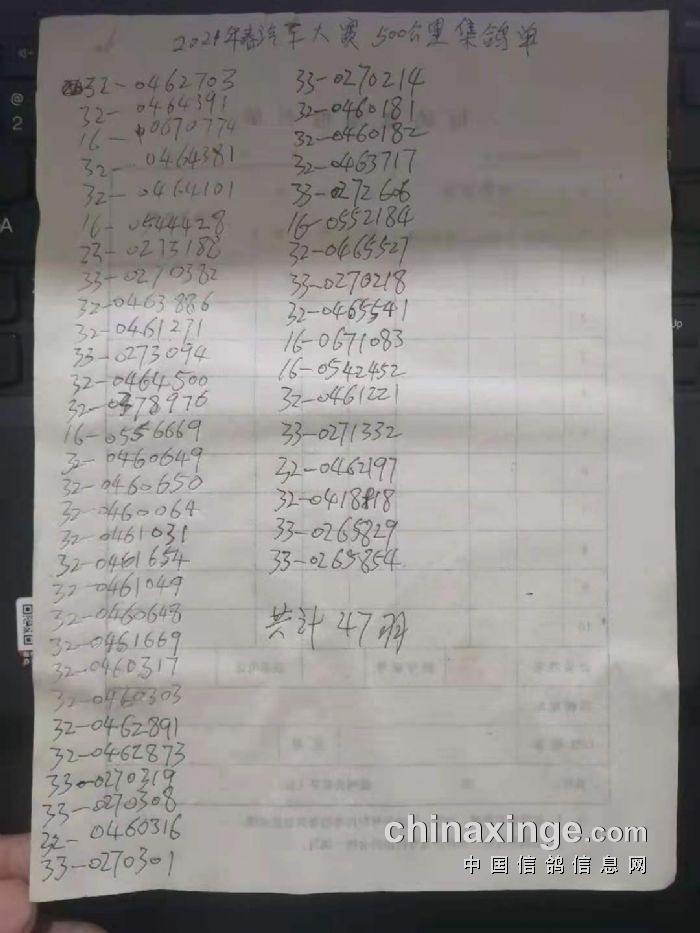 2021年春汽车大赛 500公里集鸽单
32-0462703
32-0464391
16-0670774
32-0464381
32-0464101
16-0544428
23-0273188
33-0270382
32-0463886
32-0461271
33-0273094
32-0464500
32-0378976
16-0556669
32-0460649
32-0460650
32-0460064
32-0461031
32-0461654
32-0461049
32-0460648
32-0461669
32-0460317
32-0460303
32-0462891
32-0462873
33-0270319
33-0270308
32-0460316
33-0270301
33-0270214
32-0460181
32-0460182
32-0463717
33-0272606
16-0552184
32-0465527
33-0270218
32-0465541
16-0671083
16-0542452
32-0461221
33-0271332
32-0462197
32-0418818
33-0265829
33-0265854
共计 47羽
chinaxinge.com
中国信鸽信息网